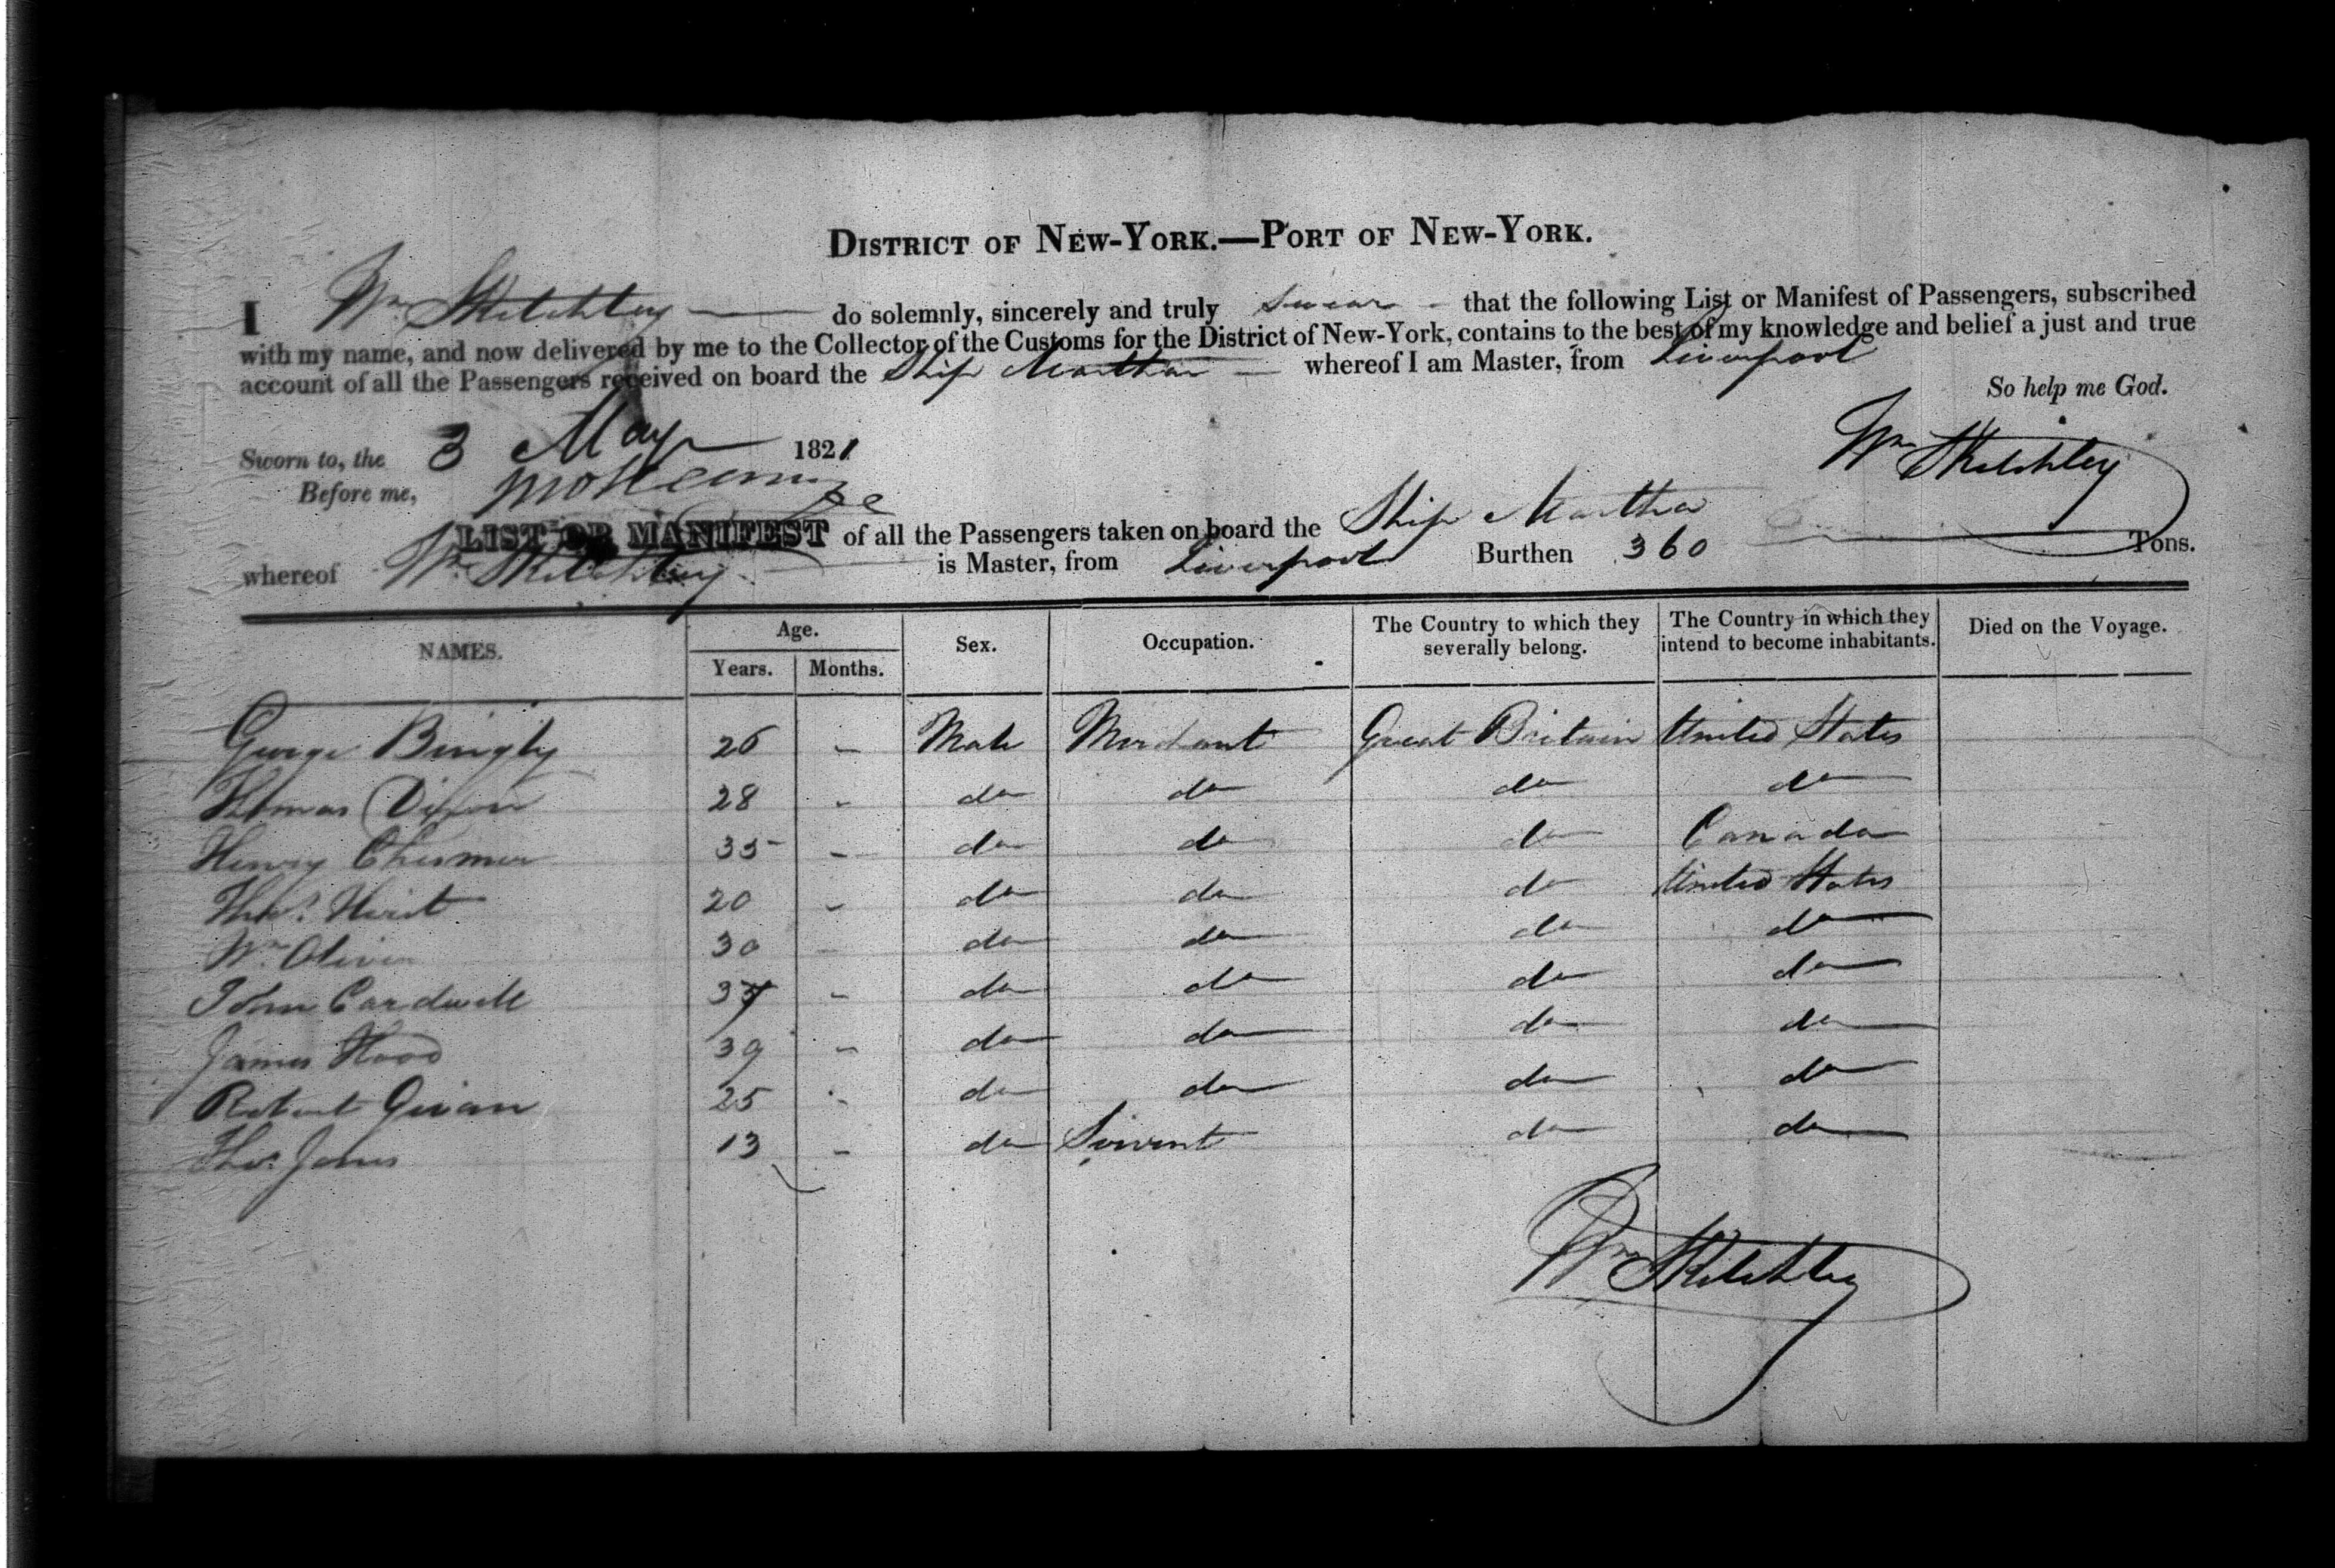 DISTRICT OF NEW-YORK.—PORT OF NEW-YORK.
I Wm Sketchley do solemnly, sincerely and truly swear that the following List or Manifest of Passengers, subscribed
with my name, and now delivered by me to the Collector of the Customs for the District of New-York, contains to the best of my knowledge and belief a just and true
account of all the Passengers received on board the Ship Martha whereof I am Master, from Liverpool
So help me God.
Sworn to, the 3 May 1821
Wm Sketchley
Before me,
LIST OR MANIFEST of all the Passengers taken on board the Ship Martha
whereof Wm Sketchley is Master, from Liverpool Burthen 360 Tons.
NAMES. Age. Years. Months. Sex. Occupation. The Country to which they severally belong. The Country in which they intend to become inhabitants. Died on the Voyage.
George Bingly 26 - Male Merchant Great Britain United States
Thomas Dixon 28 - do do do do
Henry 35 - do do do Canada
Thos. Hirst 20 - do do do United States
Wm Oliver 30 - do do do do
John Cardwell 37 - do do do do
James Hood 39 - do do do do
Robert Givan 25 - do do do do
Thos. Jones 13 - do Servent do do
Wm Sketchley